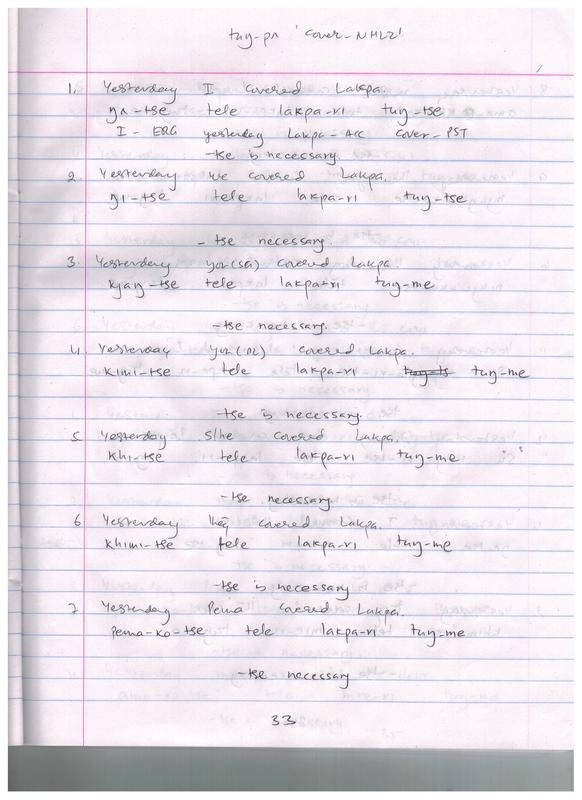 tuŋ-pʌ 'cover-NMLZ'
1. Yesterday I covered Lakpa.
ŋʌ-tse tele lakpa-ri tuŋ-tse
I-ERG yesterday Lakpa-ACC cover-PST
-tse is necessary.
2. Yesterday we covered Lakpa.
ŋi-tse tele lakpa-ri tuŋ-tse
-tse necessary.
3. Yesterday you(SG) covered Lakpa.
kyaŋ-tse tele lakpa-ri tuŋ-me
-tse necessary.
4. Yesterday you(PL) covered Lakpa.
kimi-tse tele lakpa-ri tuŋ-me
-tse is necessary.
5. Yesterday s/he covered Lakpa.
khi-tse tele lakpa-ri tuŋ-me
-tse necessary
6. Yesterday they covered Lakpa.
khimi-tse tele lakpa-ri tuŋ-me
-tse is necessary
7. Yesterday Pema covered Lakpa.
pema-ko-tse tele lakpa-ri tuŋ-me
-tse necessary
33